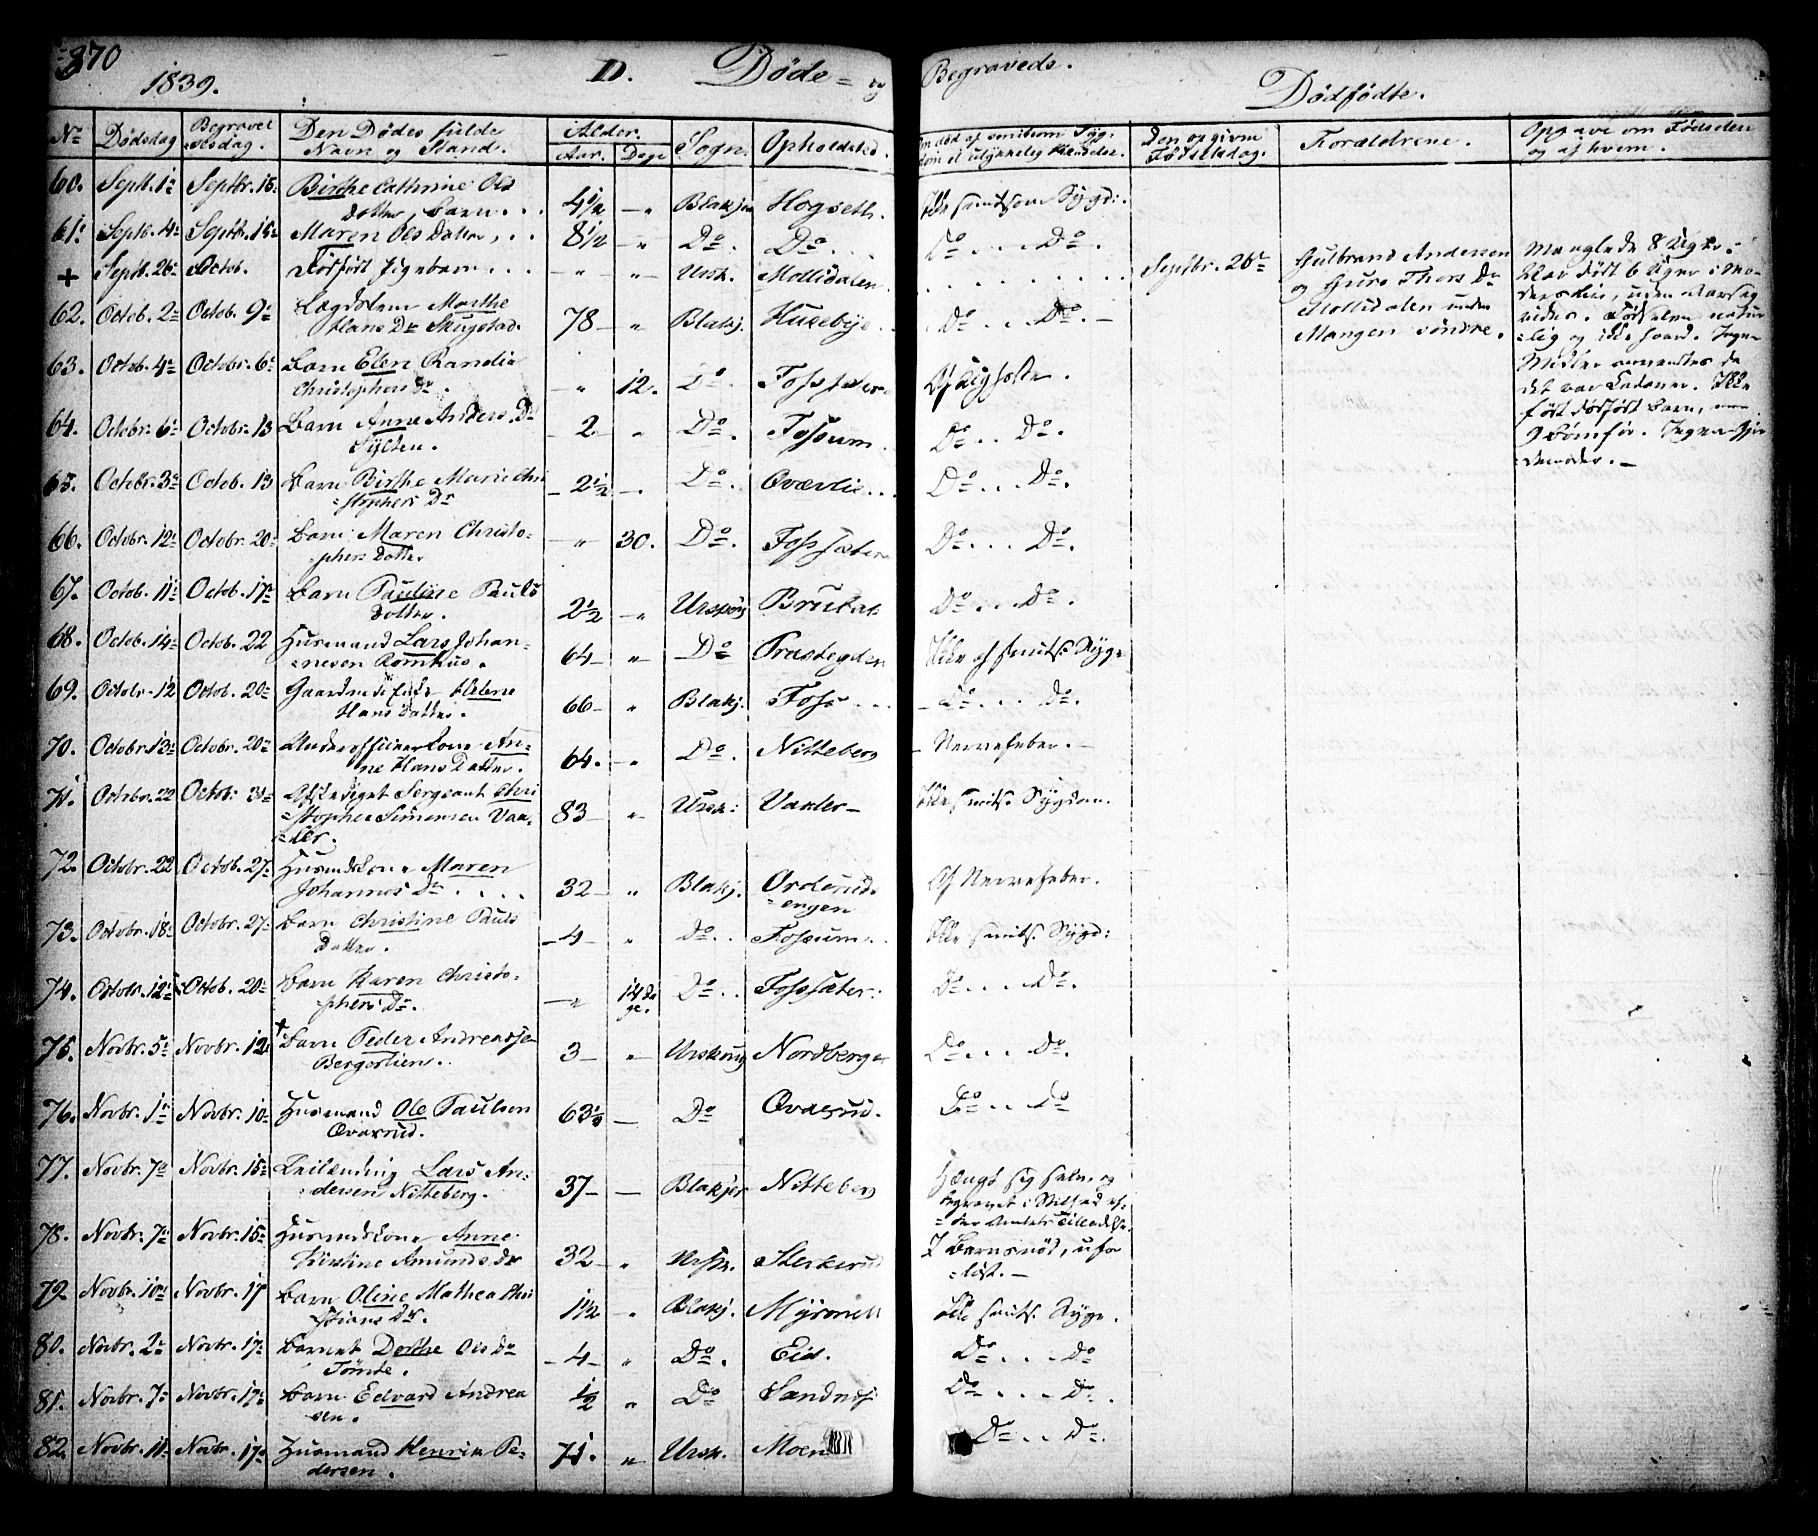 370
1839.
D. Døde- og Begravede.
Dødfødte.
No Dødsdag Begravelsesdag. Den Dødes fulde Navn og Stand. Alder. Aar. Dage Sogn. Opholdsted. Den opgivne Fødselsdag. Forældrene. Opgave om Fødselen og af hvem.
60. Septb. 1ª Septbr. 15ª Birthe Cathrine Ols
Datter, Barn . . . 4½ — „ Blakjer Hogseth. Ikke smitsom Sygd:
61. Septb. 4ª Septbr. 15ª Maren Ols Datter, . . 8½ — „ Do. Do. Do . . . Do.
+ Septb. 26ª Octob. Dødfødt Pigebarn . . . „ „ Ursk. Mollidalen Septbr. 26ª
Gulbrand Andersen
og Guro Thors Dr
Mollidalen under
Mangen søndre.
Manglede 8 Uger.
Var Født 6 Uger i Mo-
ders Liv, uden Aarsag
vides. Fødselen natur
-lig og ikke haard. Ingen
Midler anvendtes da
det var Cadaver. Ikke
født dødfødt Barn, men
9 Børn før. Ingen Gjor
demoder. —
62. Octob. 2ª Octob. 9ª Lægdslem Marthe
Hans Dr Skugstad. 78 — „ Blakj. Husebye. Do . . . Do. —
63. Octob. 4ª Octobr. 6ª Barn Elen Randia
Christophers Dr. „ 12. Do. Fossæter.
64. Octobr. 6ª Octobr. 13 Barn Anne Anders Dr
Sylten. — 2 — „ Do. Fossum. Do . . Do.
65. Octobr. 3ª Octob. 13 Barn Birthe Marie Chri
-stophers Dr — 2½ — . Do. Oværlie . . Do . . . Do.
66. Octobr. 12ª Octobr. 20ª Barn Maren Christo-
phers Datter — „ 30. Do. Fossæter Do . . . Do.
67. Octob. 11ª Octob. 17ª Barn Pauline Pauls
Datter. 2½ — „ Urskoug Do . . . Do.
68. Octob. 14ª Octob. 22 Husmand Lars Johan-
-nesen Romhus. 64 — „ Do Prastegden Ikke af smits. Syge
69. Octobr. 12 Octob. 20ª Helene
Hans Datter. 66 — „ Blakj. Foss . . . — Do . . . Do.
70. Octobr. 13ª Octobr. 20ª Underofficeer Kone An-
ne Hans Datter. 64. — „ Do. Nitteberg — Nervefeber. —
71. Octobr. 22 Octob: 31ª Afskediget Sergeant Chri
-stopher Simensen Vaa-
-ler. 83 — „ Ursk: Vaaler — Ikke smits. Sygdom.
72. Octobr. 22 Octob. 27ª Husmdskone Maren
Johannes Dr . . . . 32 — „ Blakj. Orderud-
-engen Af Nervefeber.
73. Octobr. 18ª Octobr. 27ª Barn Christine Pauls
Datter. — 4 — „ Do. . Fossum . . Ikke smits. Sygd:
74. Octobr. 12ª Octob. 20ª Barn Karen Christo-
phers Dr. — „ 14 Da
ge. Do. . Fossæter. Do . . . Do.
75. Novbr. 5ª Novbr. 12ª + Barn Peder Andreassen
Bergerlien. . 3 — „ Urskoug Nordberget Do . . . Do.
76. Novbr. 1ª Novbr. 10ª Husmand Ole Paulsen
Oværud. 63½ — Do Oværud. Do . . . Do
77. Novbr. 7ª Novbr. 15ª Leilænding Lars An-
dersen Nitteberg. 37 — — Blakjer Nitteberg Hængt sig selv, og
begravet i Stilhed ef-
-ter Amtets Tilladelse.
78. Novbr. 7ª Novbr. 15ª Husmdskone Anne
Kirstine Amunds Dr 32 — „ Ursk. Sterkerud I Barnsnød, ufor
-løst. —
79 Novbr. 10ª Novbr. 17 Barn Oline Mathea Chri
stians Dr. 1½ — „ Blakj. Myrvold Ikke smits. Syge.
80. Novbr. 2ª Novbr. 17ª Barnet Dorthe Ols Dr
Tomte. — 4 — „ Do. Eid. Do . . . Do
81. Novbr. 7ª Novbr. 17ª Barn Edvard Andrea
sen. ½ „ Do Sandnes Do . . . Do.
82. Novbr. 11ª Novbr. 17ª Husmand Henrik Pe-
dersen. 71. „ Ursk. Moen Do . . Do.